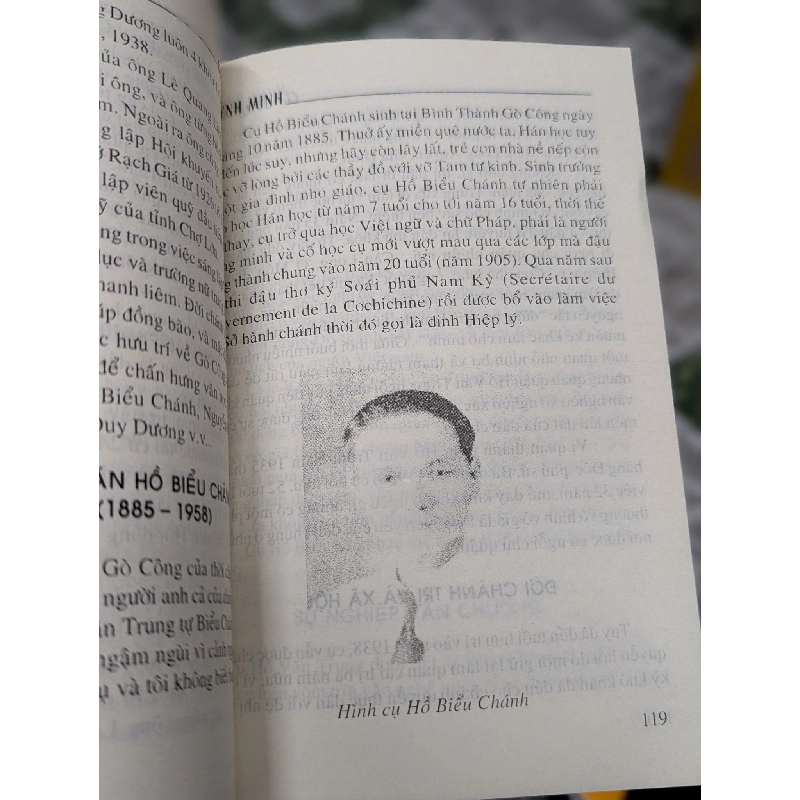 g Dương luôn 4 khóa
, 1938.
của ông Lê Quang
i ông, và ông từng
m. Ngoài ra ông còn
g lập Hội khuyến
ở Rạch Giá từ 1926
lập viên quỹ đầu
ỹ của tỉnh Chợ Lớn
ng trong việc sáng lập
lục và trường nữ
hanh liêm. Đời
áp đồng bào, và
c hưu trí về Gò Công
để chấn hưng văn
Biểu Chánh, Nguyễn
Duy Dương v.v...
ÁN HỒ BIỂU CHÁNH
(1885 – 1958)
Gò Công của thời
người anh cả của
n Trung tự Biểu Chánh
ngậm ngùi vì cảnh
ụ và tôi không hiểu
NH MINH
Cụ Hồ Biểu Chánh sinh tại Bình Thành Gò Công ngày
áng 10 năm 1885. Thuở ấy miền quê nước ta, Hán học tuy
đến lúc suy, nhưng hãy còn lây lất, trẻ con nhà nề nếp còn
c vỡ lòng bởi các thầy đồ với vỡ Tam tư kinh. Sinh trưởng
ột gia đình nho giáo, cụ Hồ Biểu Chánh tự nhiên phải
o học Hán học từ năm 7 tuổi cho tới năm 16 tuổi, thời thế
thay, cụ trở qua học Việt ngữ và chữ Pháp, phải là người
ng minh và cố học cụ mới vượt mau qua các lớp mà đậu
g thành chung vào năm 20 tuổi (năm 1905). Qua năm sau
thi đậu thơ ký Soái phủ Nam Kỳ (Secrétaire du
vernement de la Cochichine) rồi được bổ vào làm việc
Sở hành chánh thời đó gọi là đình Hiệp lý.
Hình cụ Hồ Biểu Chánh
119